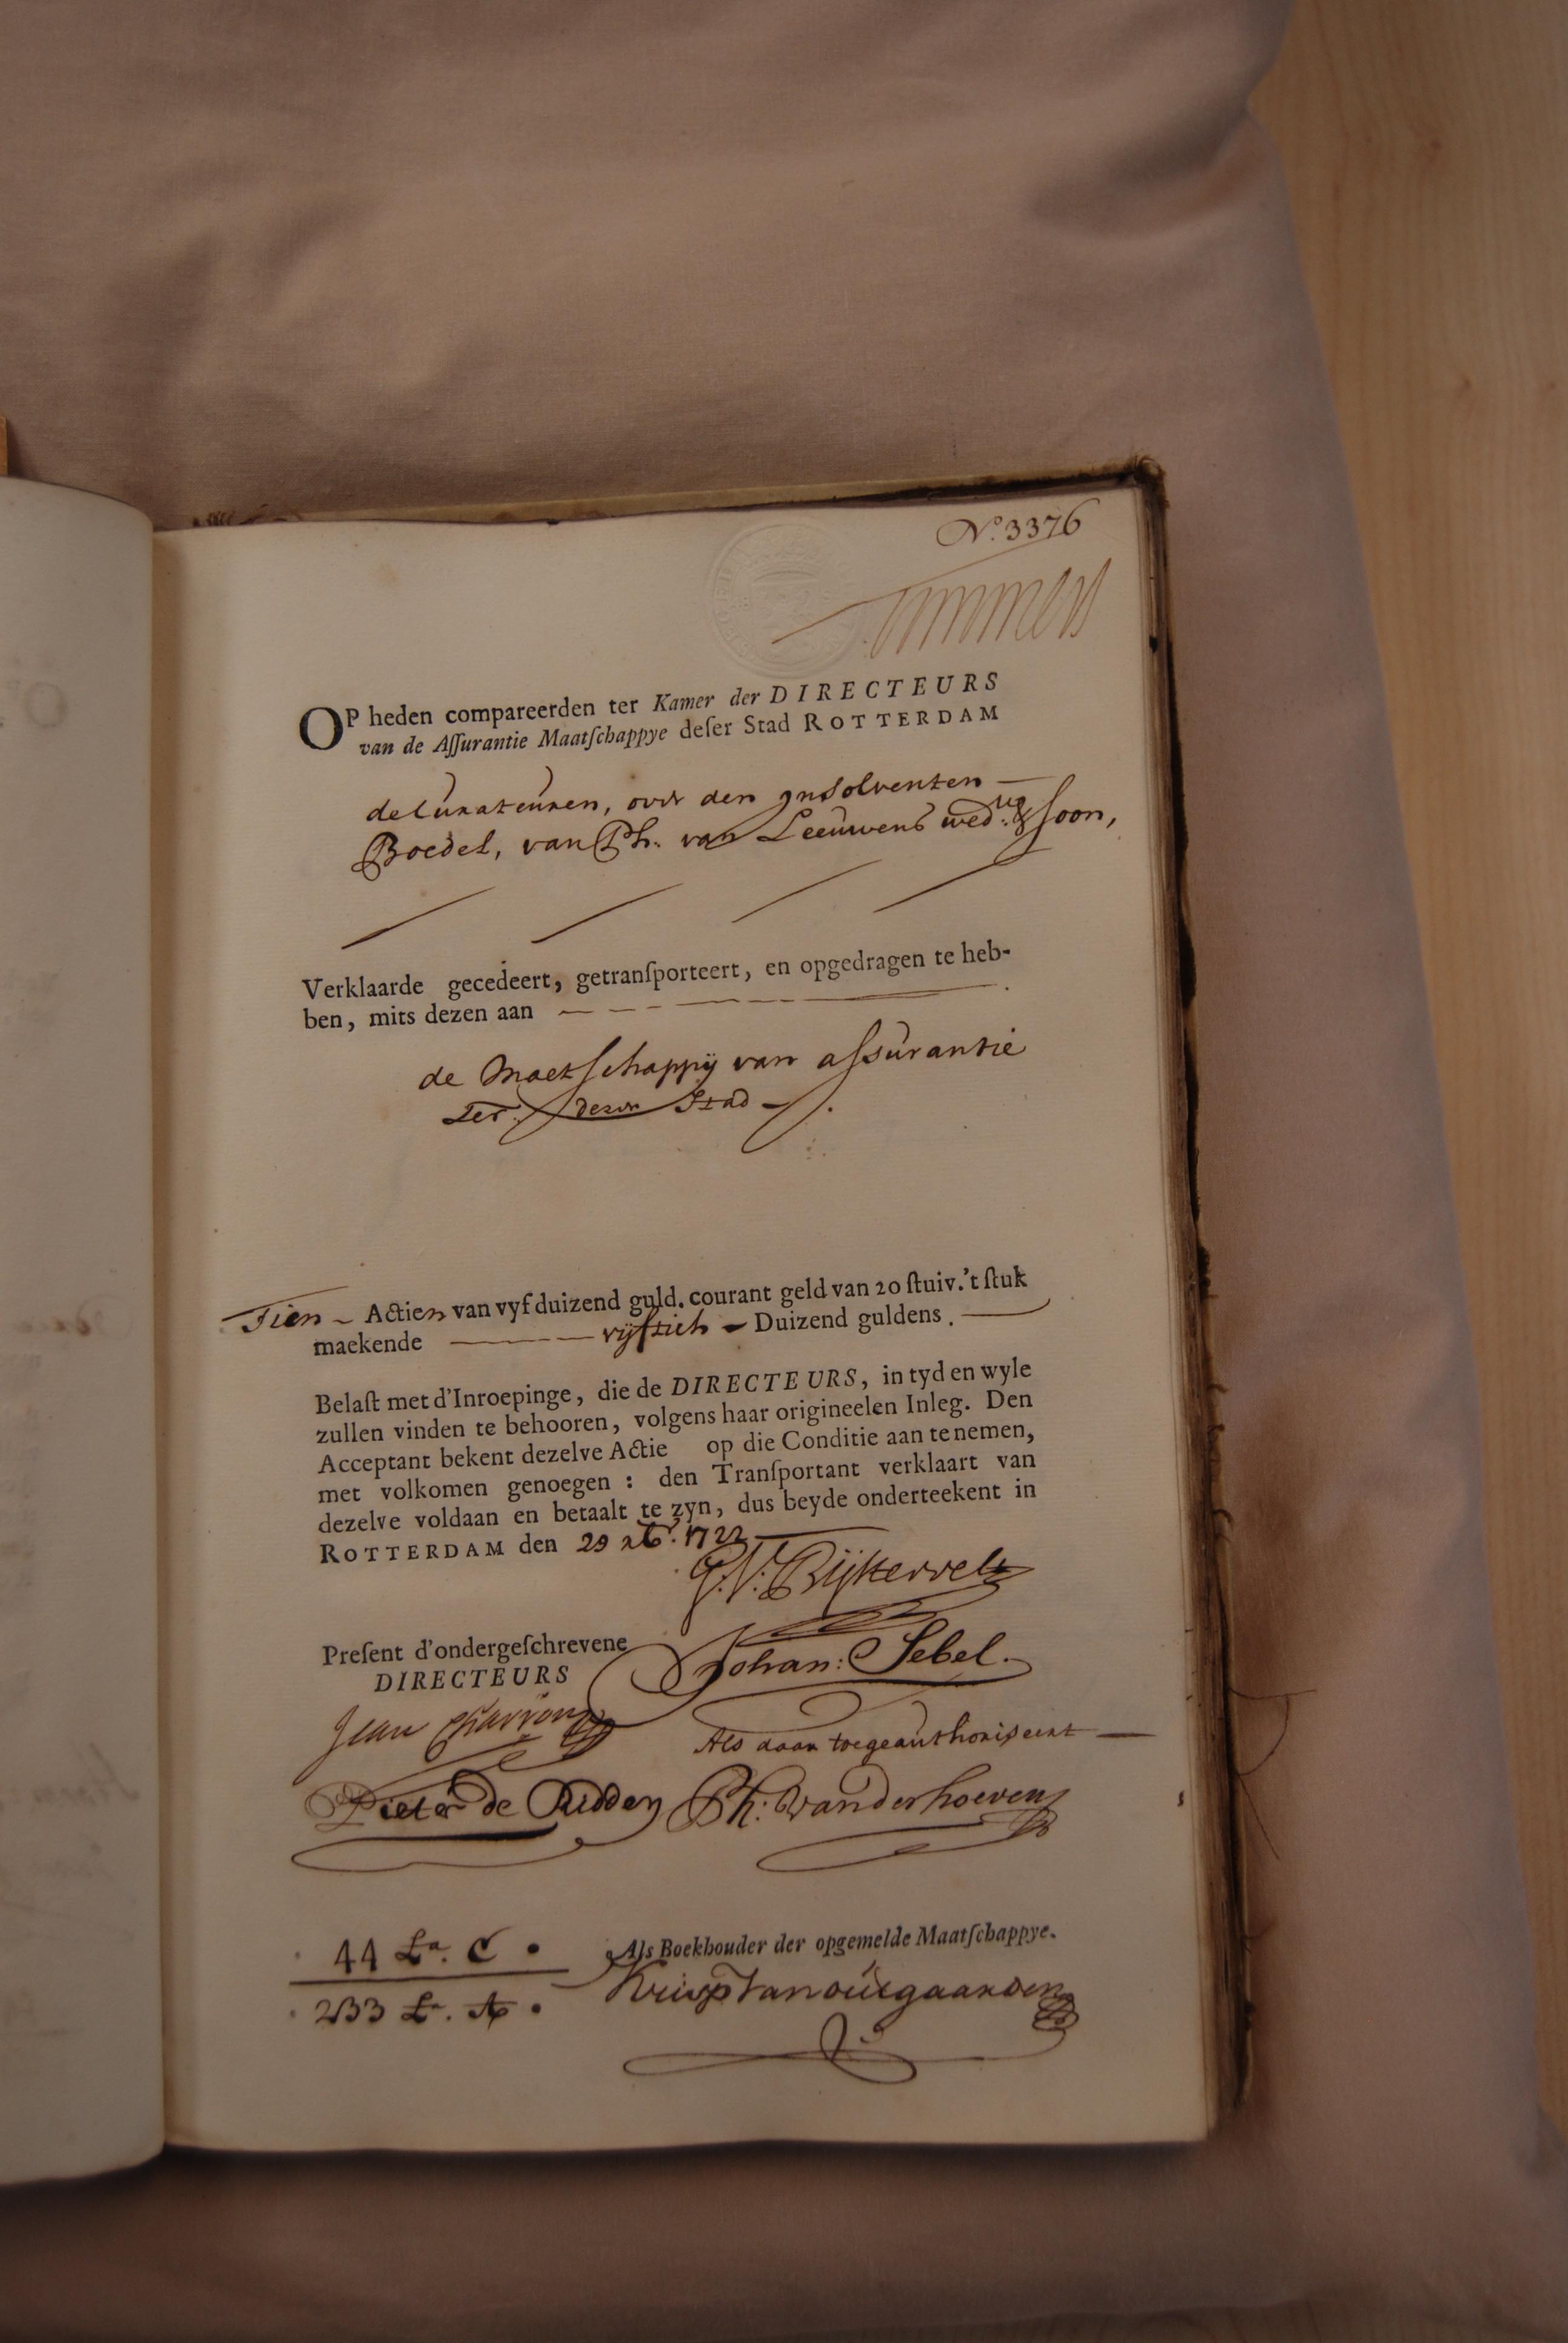 Nº. 3376
OP heden compareerden ter Kamer der DIRECTEURS
van de Aſſurantie Maatſchappye deſer Stad ROTTERDAM
de Curateuren, over den Insolventen
Boedel, van Ph. van Leeuwens wed.we & soon,
Verklaarde gecedeert, getranſporteert, en opgedragen te heb-
ben, mits dezen aan
de Maetschappij van assurantie
deser Stad
Tien Actien van vyf duizend guld. courant geld van 20 ſtuiv. 't ſtuk
maekende vijftich Duizend guldens.
Belaſt met d'Inroepinge, die de DIRECTEURS, in tyd en wyle
zullen vinden te behooren, volgens haar origineelen Inleg. Den
Acceptant bekent dezelve Actie op die Conditie aan te nemen,
met volkomen genoegen : den Tranſportant verklaart van
dezelve voldaan en betaalt te zyn, dus beyde onderteekent in
ROTTERDAM den 29 1722
Johan: Sebel.
Preſent d'ondergeſchrevene
DIRECTEURS
Jean Charron
Als daar toegeauthoriseert
Pieter de Ridder Ph: Vanderhoeven
44 Lª. C.
Als Boekhouder der opgemelde Maatſchappye.
233 Lª. A.